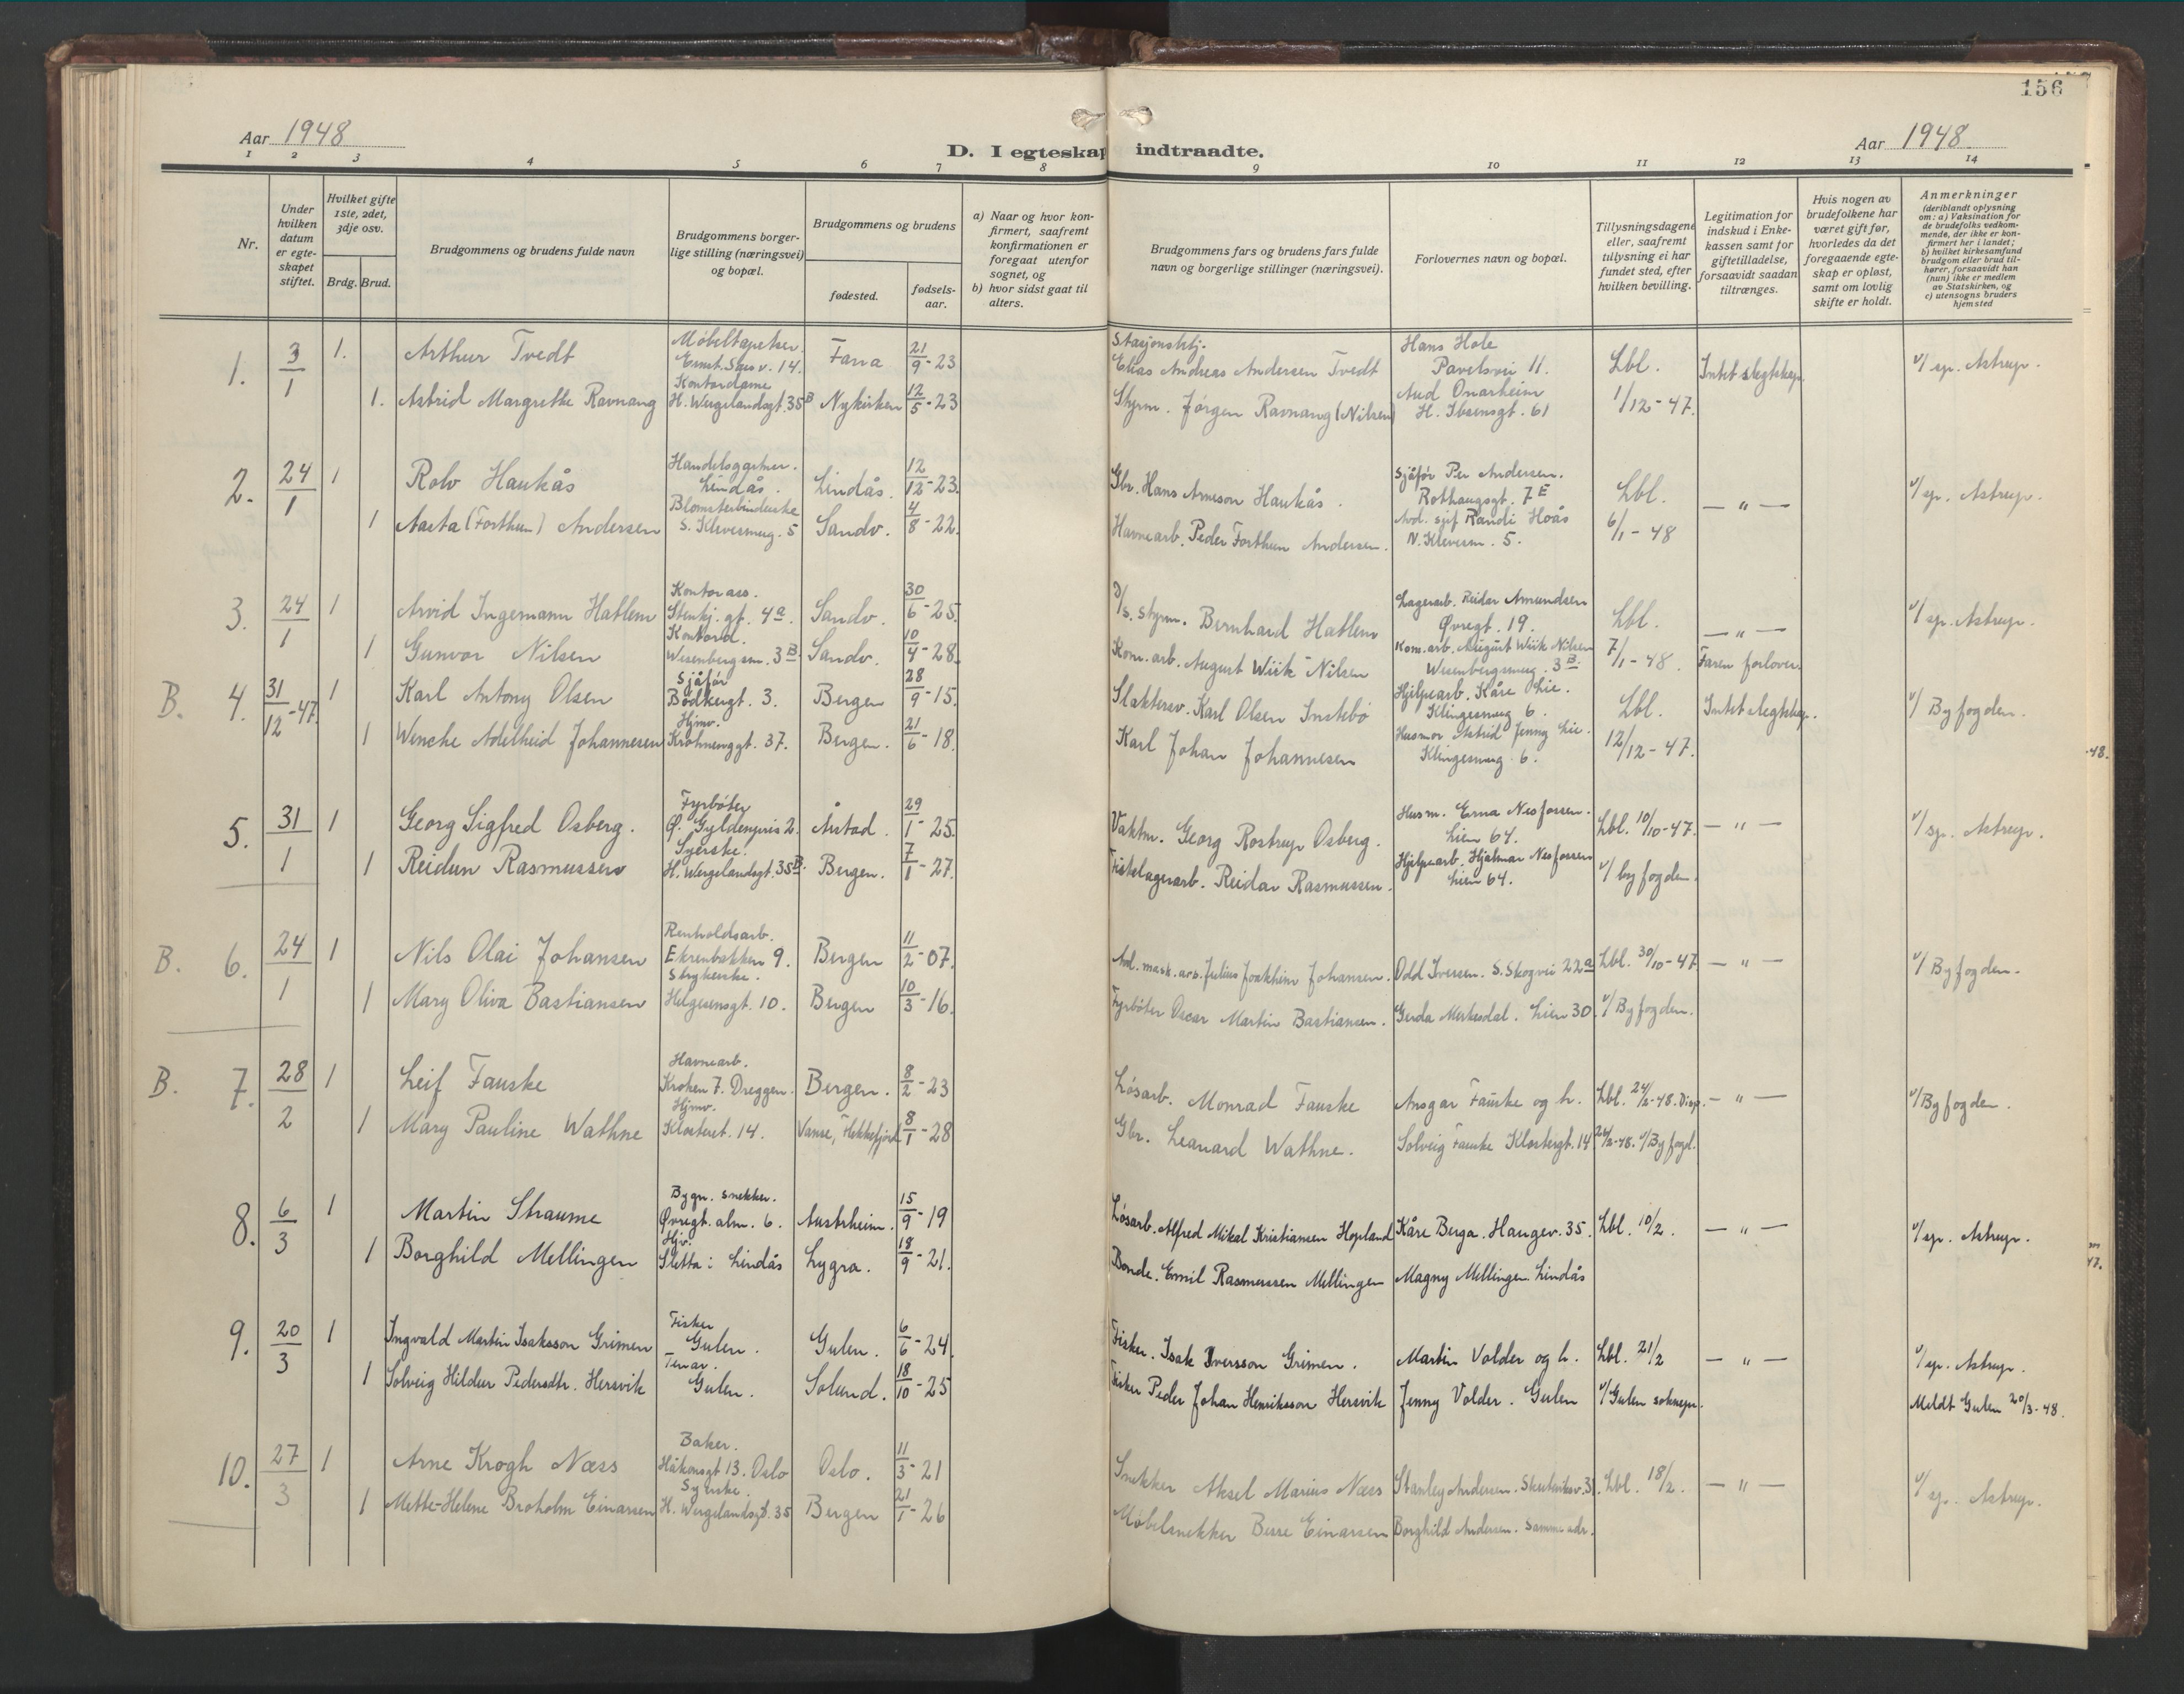 156
Aar 1948
Aar 1948
D. I egteskap indtraadte.
1 2 3 4 5 6 7 8 9 10 11 12 13 14
Nr.
Under hvilken datum er egteskapet stiftet.
Hvilket gifte 1ste, 2det, 3dje osv.
Brdg. Brud.
Brudgommens og brudens fulde navn
Brudgommens borgerlige stilling (næringsvei) og bopæl.
Brudgommens og brudens
fødested.
fødselsaar.
a) Naar og hvor konfirmert, saafremt konfirmationen er foregaat utenfor sognet, og
b) hvor sidst gaat til alters.
Brudgommens fars og brudens fars fulde navn og borgerlige stillinger (næringsvei).
Forlovernes navn og bopæl.
Tillysningsdagene eller, saafremt tillysning ei har fundet sted, efter hvilken bevilling.
Legitimation for indskud i Enkekassen samt for giftetilladelse, forsaavidt saadan tiltrænges.
Hvis nogen av brudefolkene har været gift før, hvorledes da det foregaaende egteskap er opløst, samt om lovlig skifte er holdt.
Anmerkninger
(deriblandt oplysning om: a) Vaksination for de brudefolks vedkommende, der ikke er konfirmert her i landet; b) hvilket kirkesamfund brudgom eller brud tilhører, forsaavidt han (hun) ikke er medlem av Statskirken, og c) utensogns bruders hjemsted
1. 3/1 1. Arthur Tvedt Møbeltapetser. 14. Fana 21/9-23 Stasjonsbtj. Elias Andreas Andersen Tvedt Hans Hole Pavelsvei 11. Lbl. Intet slegtskap v/ sp. Astrup.
1. Astrid Margrethe Ravnang Kontordame H. Wergelandsgt. 35B Nykirken 12/5-23 Styrm. Jørgen Ravnang (Nilsen) Aud Onarheim H. Ibsensgt. 61 1/12-47.
2. 24/1 1 Rolv Haukås Handelsgartner. Lindås. Lindås. 12/12-23. Gbr. Hans Arneson Haukås. Sjåfør Per Andersen. Rothaugsgt. 7E Lbl. — " — v/ sp. Astrup.
1 Aasta (Forthun) Andersen Blomsterbinderske S. Kleivesmug. 5 Sandv. 4/8-22. Havnearb. Peder Forthun Andersen. Randi Hoås N. Klevesm. 5. 6/1-48
3. 24/1 1 Arvid Ingemann Hatlem Kontorass. Steinkj. gt. 4a. Sandv. 30/6-25. D/s. styrm. Bernhard Hatlem Lagerarb. Reidar Amundsen Øvregt. 19. Lbl. — " — v/ sp. Astrup.
1 Gunvor Nilsen Kontord. Wesenbergsm. 3B. Sandv. 10/4-28. Kom. arb. August Wiik Nilsen Kom. arb. August Wiik Nilsen Wesenbergsmug. 3B. 7/1-48. Faren forlover.
B. 4. 31/12-47 1 Karl Antony Olsen Sjåfør Bødkergt. 3. Bergen 28/9-15. Slaktersv. Karl Olsen Instebø Hjelpearb. Kåre Lie. Klingesmug 6. Lbl. Intet slegtskap. v/ Byfogden.
1 Wenche Adelheid Johannesen Hjmv. Krohnenggt. 37. Bergen. 21/6-18. Karl Johan Johannesen Husmor Astrid Jenny Lie. Klingesmug. 6. 12/12-47.
5. 31/1 1 Georg Sigfred Osberg. Fyrbøter Ø. Gyldenpris 2. Årstad. 29/1-25. Vaktm. Georg Rostrup Osberg. Husm. Erna Nesfossen. Lien 64. Lbl. 10/10-47. — " — v/ sp. Astrup.
1 Reidun Rasmussen Syerske. H. Wergelandsgt. 35B. Bergen. 7/1-27. Fiskelagerarb. Reidar Rasmussen. Hjelpearb. Hjalmar Nesfossen Lien 64. v/ byfogden.
B. 6. 24/1 1 Nils Olai Johansen Renholdsarb. Ekrenbakken 9. Bergen 11/2-07. mask. arb. Julius Joakheim Johansen. Odd Iversen. S. Skogvei 22a Lbl. 30/10-47. — " — v/ Byfogden.
1 Mary Oliva Bastiansen Strykerske. Helgesensgt. 10. Bergen 10/3-16. Fyrbøter Oscar Martin Bastiansen. Gerda Merkesdal. Lien 30. v/ Byfogden.
B. 7. 28/2 1 Leif Fauske Havnearb. Kroken 7. Dreggen. Bergen. 8/2-23 Løsarb. Monrad Fauske Ansgar Fauske og h. Lbl. 24/2-48. Disp. — " — v/ Byfogden.
1 Mary Pauline Wathne Hjmv. Klosteret. 14. Vanse, Flekkefjord 8/1-28 Gbr. Leonard Wathne. Solveig Fauske Klostergt. 14 26/2-48. v/ Byfogd.
8. 6/3 1 Martin Straume Bygn. snekker. Øvregt. alm. 6. Austrheim. 15/9-19 Løsarb. Alfred Mikal Kristiansen Hopland Kåre Berga. Haugev. 35. Lbl. 10/2. — " — v/ sp. Astrup.
1 Borghild Mellingen Hjv. Sletta i Lindås Lygra. 18/9-21. Bonde. Emil Rasmussen Mellingen Magny Mellingen. Lindås
9. 20/3 1 Ingvald Martin Isaksson Grimen Fisker Gulen. Gulen. 6/6-24. Fisker. Isak Iversson Grimen. Martin Valder og h. Lbl. 21/2 — " — v/ sp. Astrup.
1 Solveig Hildur Pedersdtr. Hersvik Tenar. Gulen. Solund. 18/10-25 Fisker Peder Johan Henriksson Hersvik Jenny Valder. Gulen v/ Gulen soknepr. Meldt Gulen 20/3-48.
10. 27/3 1 Arne Krogh Næss Baker. Håkonsgt 13. Oslo Oslo. 11/3-21 Snekker Aksel Marius Næss Stanley Andersen. Lbl. 18/2. — " — v/ sp. Astrup.
1 Mette-Helene Broholm Einarsen Syerske. H. Wergelandsgt. 35 Bergen 21/1-26 Møbelsnekker Einarsen Borghild Andersen. Samme adr.